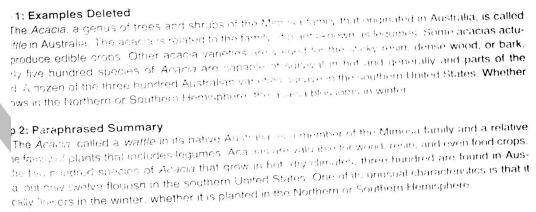 1: Examples Deleted
The Acacia, a genus of trees and shrubs of the Mimosa family that originated in Australia, is called
ttle in Australia. The acacia is related to the family of plants known as legumes. Some acacias actu-
produce edible crops. Other acacia varieties are valued for the sticky resin, dense wood, or bark.
ly five hundred species of Acacia are capable of survival in hot and generally arid parts of the
d. A dozen of the three hundred Australian varieties survive in the southern United States. Whether
ows in the Northern or Southern Hemisphere, the acacia blossoms in winter.
p 2: Paraphrased Summary
The Acacia, called a wattle in its native Australia, is a member of the Mimosa family and a relative
e family of plants that includes legumes. Acacias are valuable for wood, resin, and even food crops.
the five hundred species of Acacia that grow in hot, dry climates, three hundred are found in Aus-
a, but only twelve flourish in the southern United States. One of its unusual characteristics is that it
cally flowers in the winter, whether it is planted in the Northern or Southern Hemisphere.